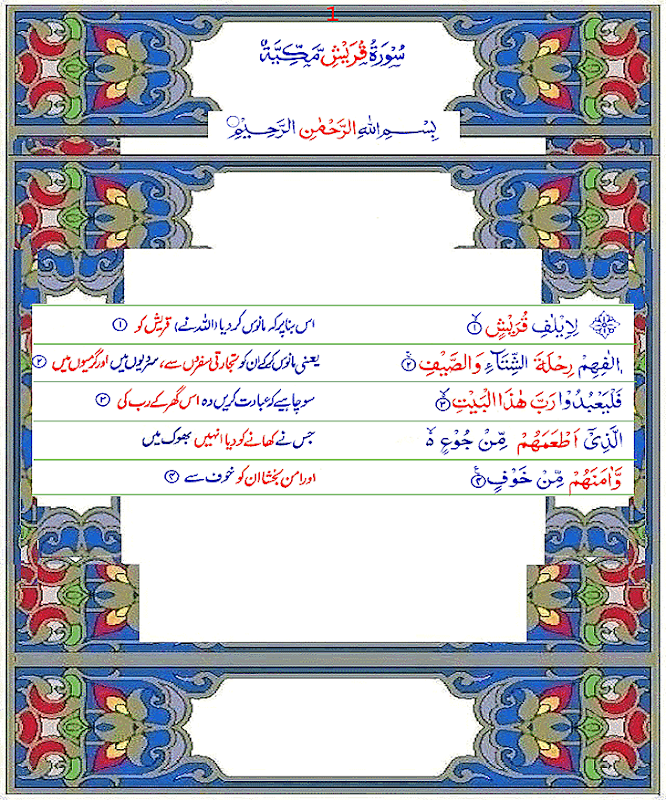 1
سُوْرَةُ قُرَيْشٍ مَّكِّيَّةٌ
بِسْمِ اللّٰهِ الرَّحْمٰنِ الرَّحِيْمِ
لِاِيْلٰفِ قُرَيْشٍ ۙ﴿۱﴾ اس بنا پر کہ مانوس کر دیا (اللہ نے) قریش کو ﴿۱﴾
اٖلٰفِهِمْ رِحْلَةَ الشِّتَآءِ وَالصَّيْفِ ۚ﴿۲﴾ یعنی مانوس کر کے ان کو تجارتی سفر سے، سردیوں میں اور گرمیوں میں ﴿۲﴾
فَلْيَعْبُدُوْا رَبَّ هٰذَا الْبَيْتِ ۙ﴿۳﴾ سو چاہیے کہ عبادت کریں وہ اس گھر کے رب کی ﴿۳﴾
الَّذِيْۤ اَطْعَمَهُمْ مِّنْ جُوْعٍ ۙ۬ جس نے کھانے کو دیا انہیں بھوک میں
وَّاٰمَنَهُمْ مِّنْ خَوْفٍ ۧ﴿۴﴾ اور امن بخشا ان کو خوف سے ﴿۴﴾